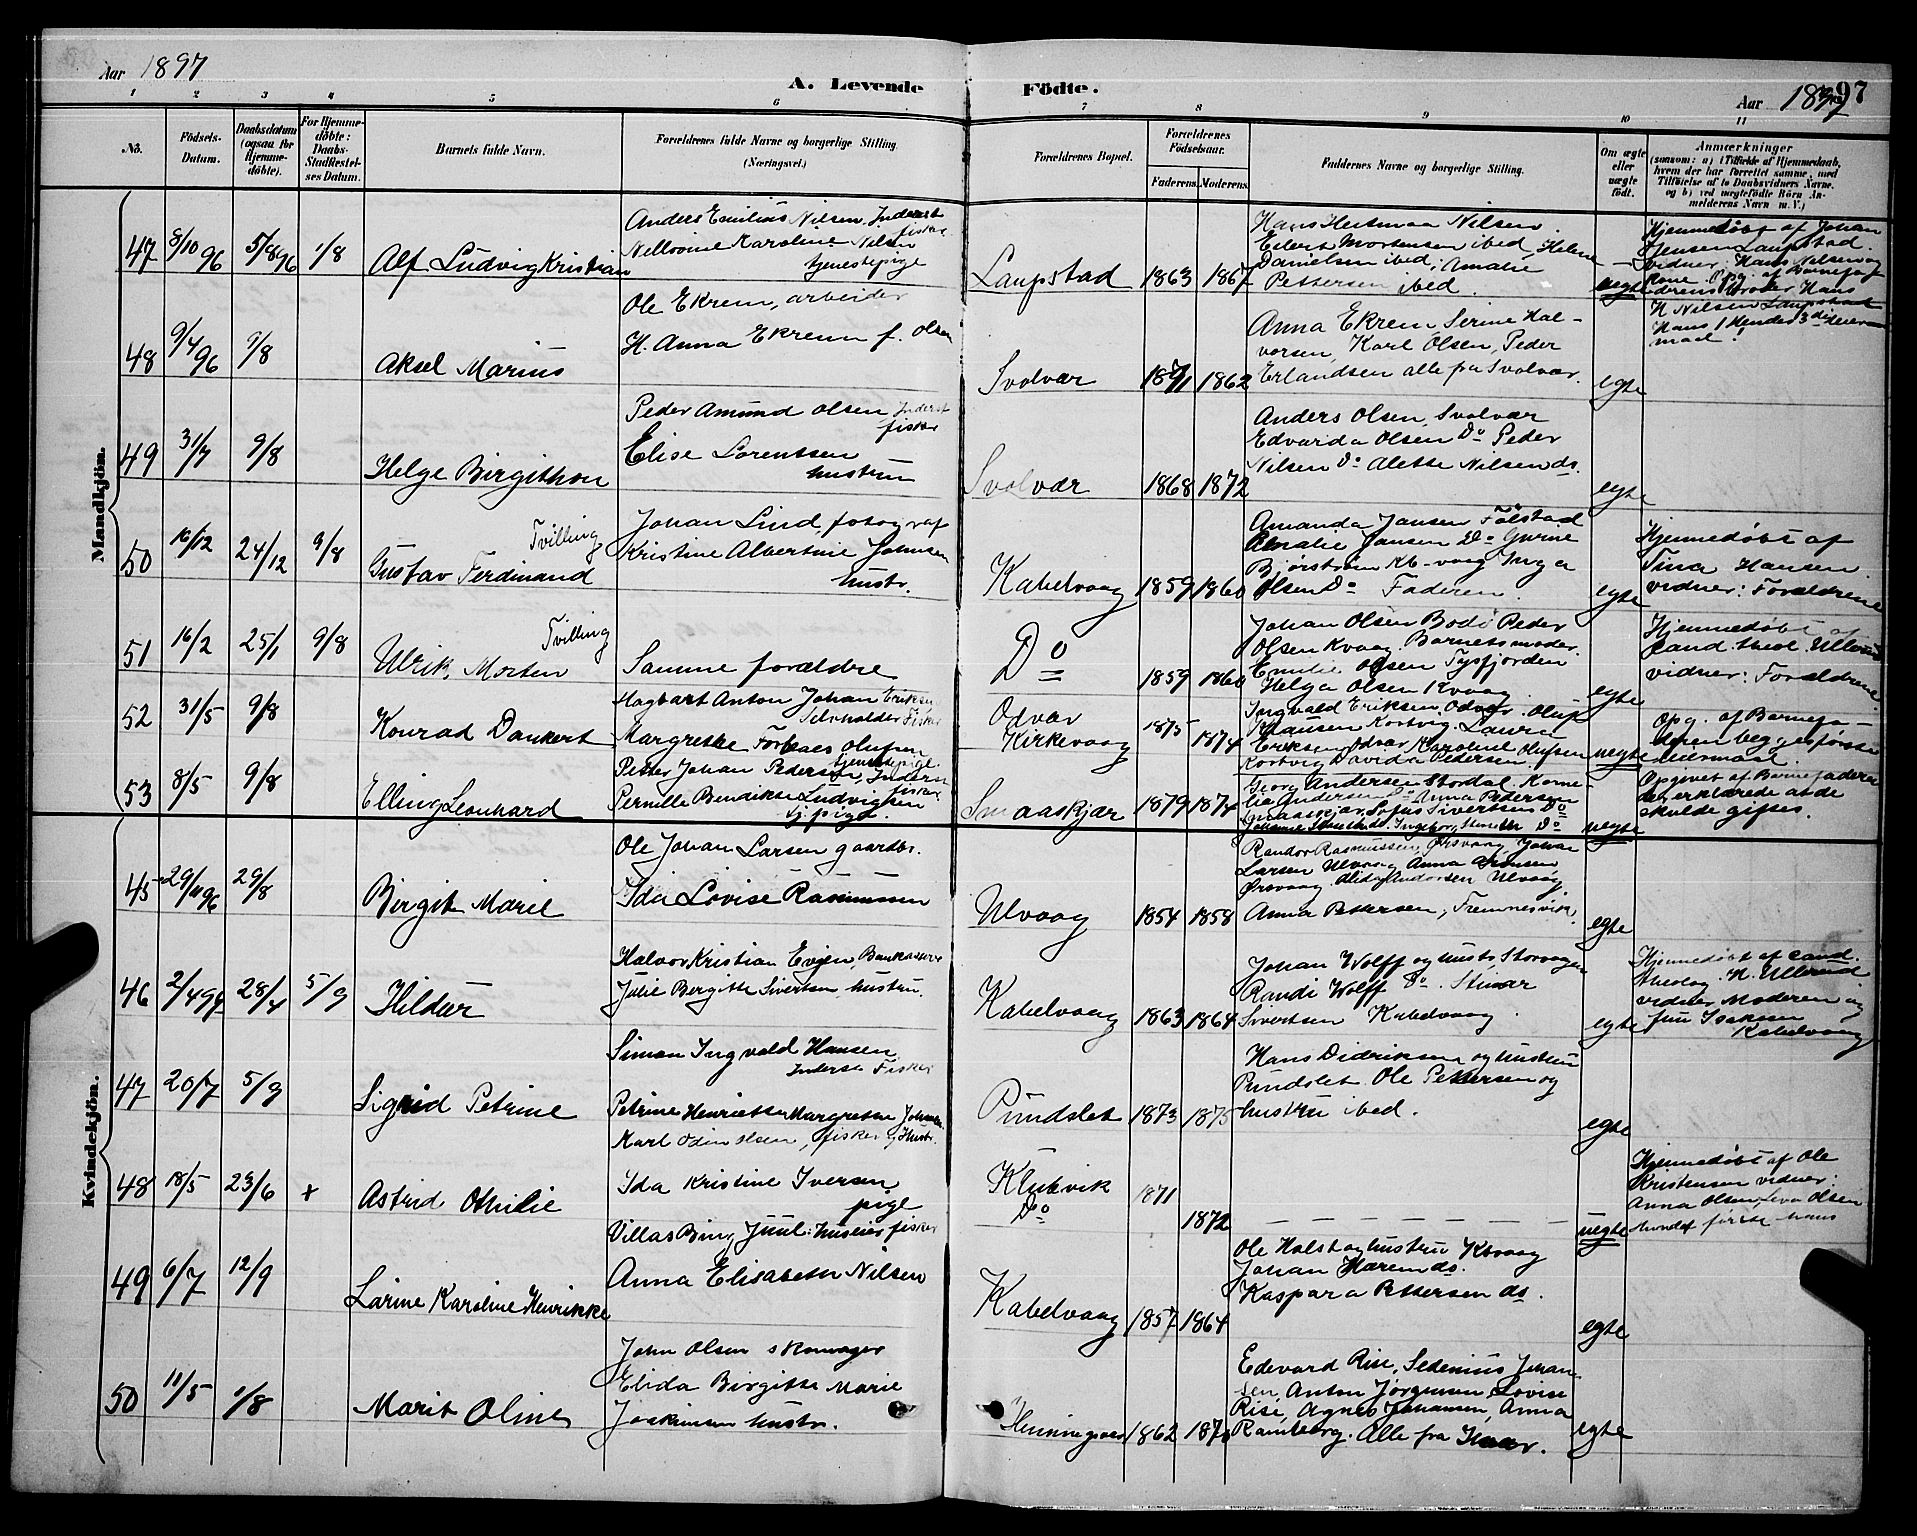 Aar 1897
A. Levende Fødte.
Aar 1897
97
1 2 3 4 5 6 7 8 9 10 11
No.
Fødsels-Datum.
Daabsdatum (ogsaa for Hjemme-døbte).
For Hjemme-døbte: Daabs-Stadfæstel-ses Datum.
Barnets fulde Navn.
Forældrenes fulde Navne og borgerlige Stilling. (Næringsvei.)
Forældrenes Bopæl.
Forældrenes Fødselsaar.
Faderens. Moderens.
Faddernes Navne og borgerlige Stilling.
Om ægte eller uægte født.
Anmærkninger
(saasom: a) i Tilfælde af Hjemmedaab,
hvem der har forrettet samme, med
Tilføielse af to Daabsvidners Navne.
og b) ved uægtefødte Börn An-
melderens Navn m. V.)
Mandkjøn.
47 8/10 96 5/8 96 1/8 Alf Ludvig Kristian
Anders Emilius Nilsen, Inderst fisker
Karoline Nilsen
tjenestepige
Laupstad 1863 1867
Hans Nilsen.
Eilert Mortensen ibed, Helene
Danielsen ibed, Amalie
Pettersen ibed.
uegte
Hjemmedøbt af Johan
Jensen Laupstad.
vidner: Hans Nilsen og
Kone. Opg. af Barnefa-
derens Broder Hans
H Nilsen Laupstad
48 9/4 96 9/8 Aksel Marius
Ole Ekrem, arbeider
H. Anna Ekrem f. Olsen
Svolvær 1871 1862
Anna Ekrem, Serine Hal-
vorsen, Karl Olsen, Peder
Erlandsen alle fra Svolvær.
egte
49 31/7 9/8 Helge Birgithon
Peder Amund Olsen Inderst
fisker
Elise Lorentsen
hustru
Svolvær 1868 1872
Anders Olsen, Svolvær
Edvarda Olsen Do Peder
Nilsen Do Alette Nilsen ds.
egte
50 16/12 24/12 9/8 Tvilling
Gustav Ferdinand
Johan Lind, fotograf
Kristine Albertine Johnsen
hustr.
Kabelvaag 1859 1860
Amanda Jansen Fölstad
Amalie Jansen Do Gurine
Bjørstrøm Kb-vaag Inga
Olsen Do Faderen.
egte
Hjemmedøbt af
Tina Hansen.
vidner: Forældrene
51 16/2 25/1 9/8 Tvilling
Ulrik Morten
Samme forældre
Do 1859 1860
Johan Olsen Bodö Peder
Olsen Kvaag Barnets moder.
Emilie Olsen Tysfjorden
Helga Olsen Kvaag.
egte
Hjemmedøbt af
Cand. theol. Ullerud
vidner: Forældrene
52 31/5 9/8 Konrad Dankert
Hagbart Anton Johan Eriksen
Selvholder Fisker
Margrethe Olufsen
tjenestepige
Odvær
Kirkevaag 1875 1874
Ingvald Eriksen, Odvær. Oluf
Klausen Kortvig. Laura
Eriksen Odvær Karoline Olufsen
Kortvig Davida Pedersen.
uegte
Opg. af Barnefa-
deren begges første
leiermaal.
53 8/5 9/8 Elling Leonhard
Petter Johan Pedersen, Inderst
fisker
Pernille Bendikte Ludvigsen
tj. pige.
Smaaskjær 1879 1874
Georg Andersen Stordal. Korne-
lia Andersen Do Anna Pedersen
Smaaskjær, Sofus Sivertsen Do
uegte
Opgivet af Barnefaderen
der erklærede at de
skulde giftes.
Kvindekjøn.
45 29/11 96 29/8 Birgit Marie
Ole Johan Larsen gaardbr.
Ida Lovise Rasmussen
Ulvaag 1854 1858
Randor Rasmussen, Ørsvaag, Johan
Larsen Ulvaag Anna Hansen
Ørsvaag. Alida Andersen Ulvaag.
Anna Pettersen, Tremnesvik.
egte
46 2/4 28/4 5/9 Hildur
Halvor Kristian Evjen, Bankkasserer
Julie Bergitte Sivertsen, hustru.
Kabelvaag 1863 1864
Johan Wolff og hustr. Storvaagen
Randi Wolff Do.
Sivertsen Kabelvaag.
egte
Hjemmedøbt af Cand.
theolog. N. Ullerud
vidner Moderen og
fru Isaksen
Kabelvaag
47 20/7 5/9 Sigrid Petrine
Simon Ingvald Hansen
Inderst Fisker
Petrine Henriette Margrethe
Pundslet 1873 1875
Hans Didriksen og hustru
Pundslet. Ole Pettersen og
hustru ibed.
egte
48 18/5 23/6 + Astrid Othilie
Karl Odin Olsen, fisker
Ida Kristine Iversen
pige
Klubvik
Do 1871 1872
– – – – – –
uegte
Hjemmedøbt af Ole
Kristensen vidner:
Anna Olsen, Lova Olsen
49 6/7 12/9 Larine Karoline Henrikke
Villas Bing Juul: huseier fisker
Anna Elisabeth Nilsen
Kabelvaag 1857 1864
Ole Holst og hustru Kbvaag
Johan Harem ds.
Kaspara Pettersen ds.
egte
50 11/5 1/8 Marit Oline
John Olsen skomager
Elida Birgitte Marie
Joakimsen hustr.
Henningsvær 1862 187
Edevard Rise, Sedenius Johan-
sen, Anton Jørgensen, Lovise
Rise, Agnes Johansen, Anna
Ramberg. Alle fra Hvær.
egte